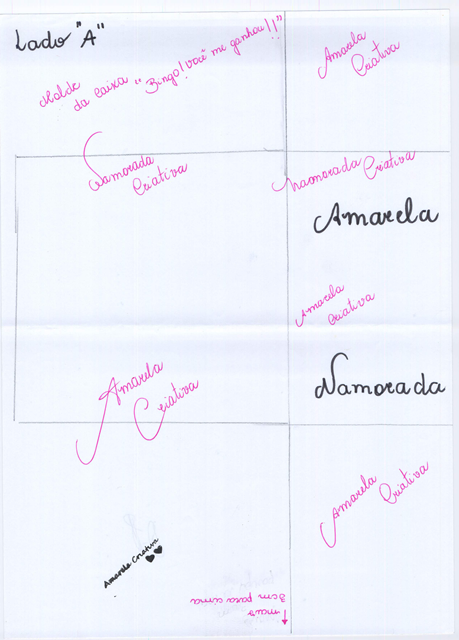 Lado "A"
Molde
da caixa "Bingo! Você me ganhou!!"
Amarela
Criativa
Namorada
Criativa
Namorada Criativa
Amarela
Amarela
Criativa
Namorada
Amarela
Criativa
Amarela
Criativa
Amarela Criativa
↑ mais
3cm para cima